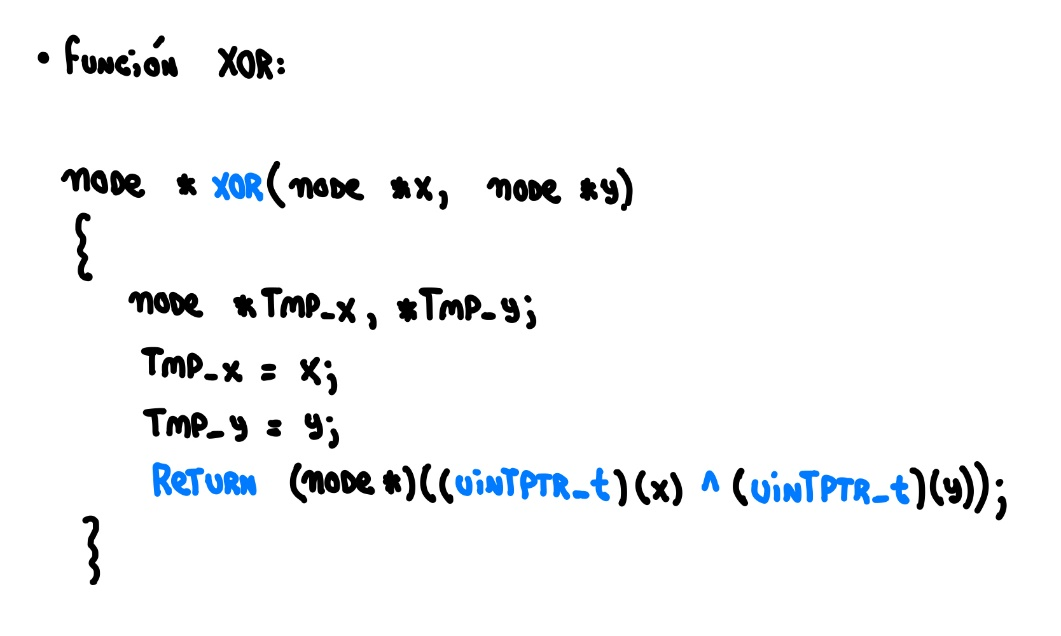 • Función XOR:
node * XOR(node *x, node *y)
{
node *Tmp_x, *Tmp_y;
Tmp_x = x;
Tmp_y = y;
Return (node *)((uinTPTR_t)(x) ^ (uinTPTR_t)(y));
}